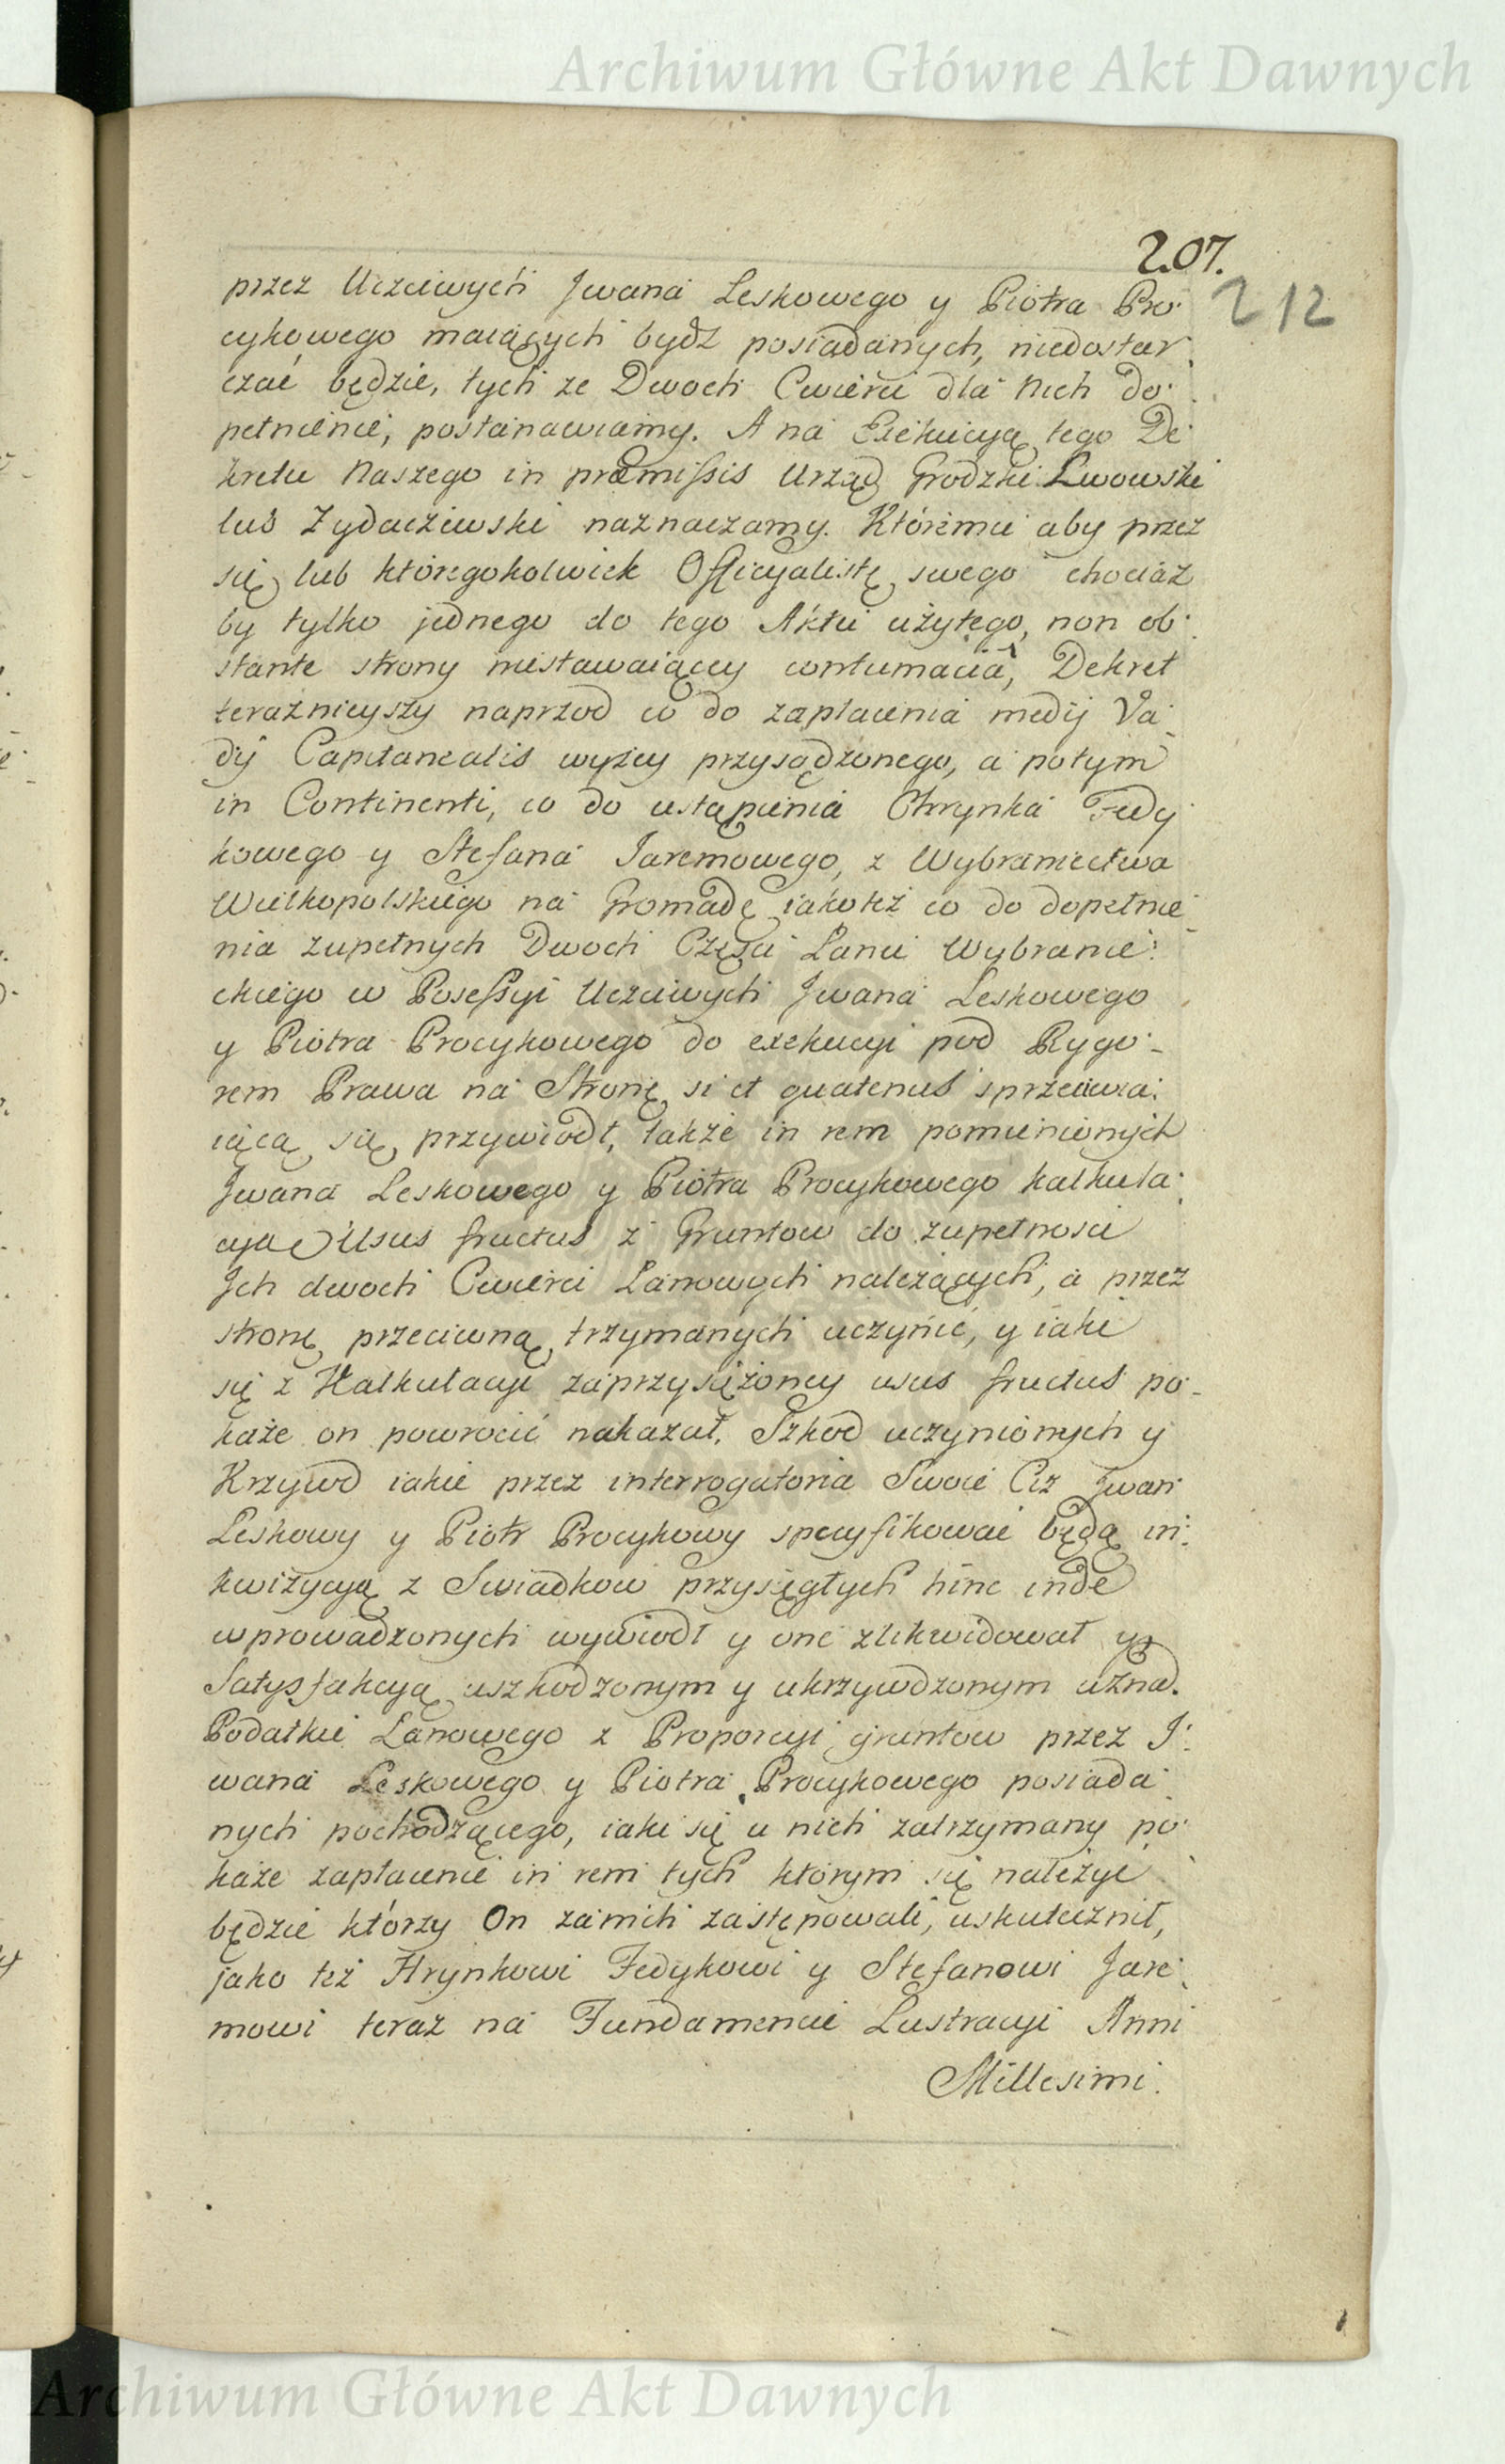 Archiwum Główne Akt Dawnych
207.
212
przez Uczciwych Jwana Leskowego y Piotra Pro-
cykowego maiących bydź posiadanych, niedostar-
czać będzie, tych ze Dwoch Cwierci dla Nich do-
pełnienie, postanawiamy. A na Exekucyą tego De-
kretu Naszego in præmissis Urząd Grodzki Lwowski
lub Zydaczewski naznaczamy. Któremu aby przez
się lub któregokolwiek Officyalistę swego chociaż
by tylko jednego do tego Aktu użytego, non ob-
stante strony niestawaiącey contumacia, Dekret
teraznieyszy naprzod co do zapłacenia medij Va-
dij Capitanealis wyżey przysądzonego, a potym
in Continenti, co do ustąpienia Chrynka Fedy-
kowego y Stefana Jaremowego, z Wybraniectwa
Wielkopolskiego na Gromadę iakotez co do dopełnie-
nia zupełnych Dwoch Częsci Lanu Wybranie-
ckiego w Posessyi Uczciwych Jwana Leskowego
y Piotra Procykowego do exekucyi pod Rygo-
rem Prawa na Stronę si et quatenus sprzeciwia-
iącą się przywiodł, także in rem pomienionych
Jwana Leskowego y Piotra Procykowego kalkula-
cyą Usus fructus z Gruntow do zupełnosci
Jch dwoch Cwierci Lanowych należących, a przez
stronę przeciwną trzymanych uczynić, y iaki
się z Kalkulacyi zaprzysiężoney usus fructus po-
każe on powrocić nakazał. Szkod uczynionych y
Krzywd iakie przez interrogatoria Swoie Ciż Jwan
Leskowy y Piotr Procykowy specyfikować będą in-
kwizycyą z Swiadkow przysięgłych hinc inde
wprowadzonych wywiodł y one zlikwidował y
Satysfakcyą uszkodzonym y ukrzywdzonym uznał.
Podatku Lanowego z Proporcyi gruntow przez J-
wana Leskowego y Piotra Procykowego posiada-
nych pochodzącego, iaki się u nich zatrzymany po-
każe zapłacenie in rem tych którym się należyć
będzie którzy On zanich zastępowali, uskutecznił,
jako też Hrynkowi Fedykowi y Stefanowi Jare-
mowi teraz na Fundamencie Lustracyi Anni
Millesimi.
Archiwum Główne Akt Dawnych